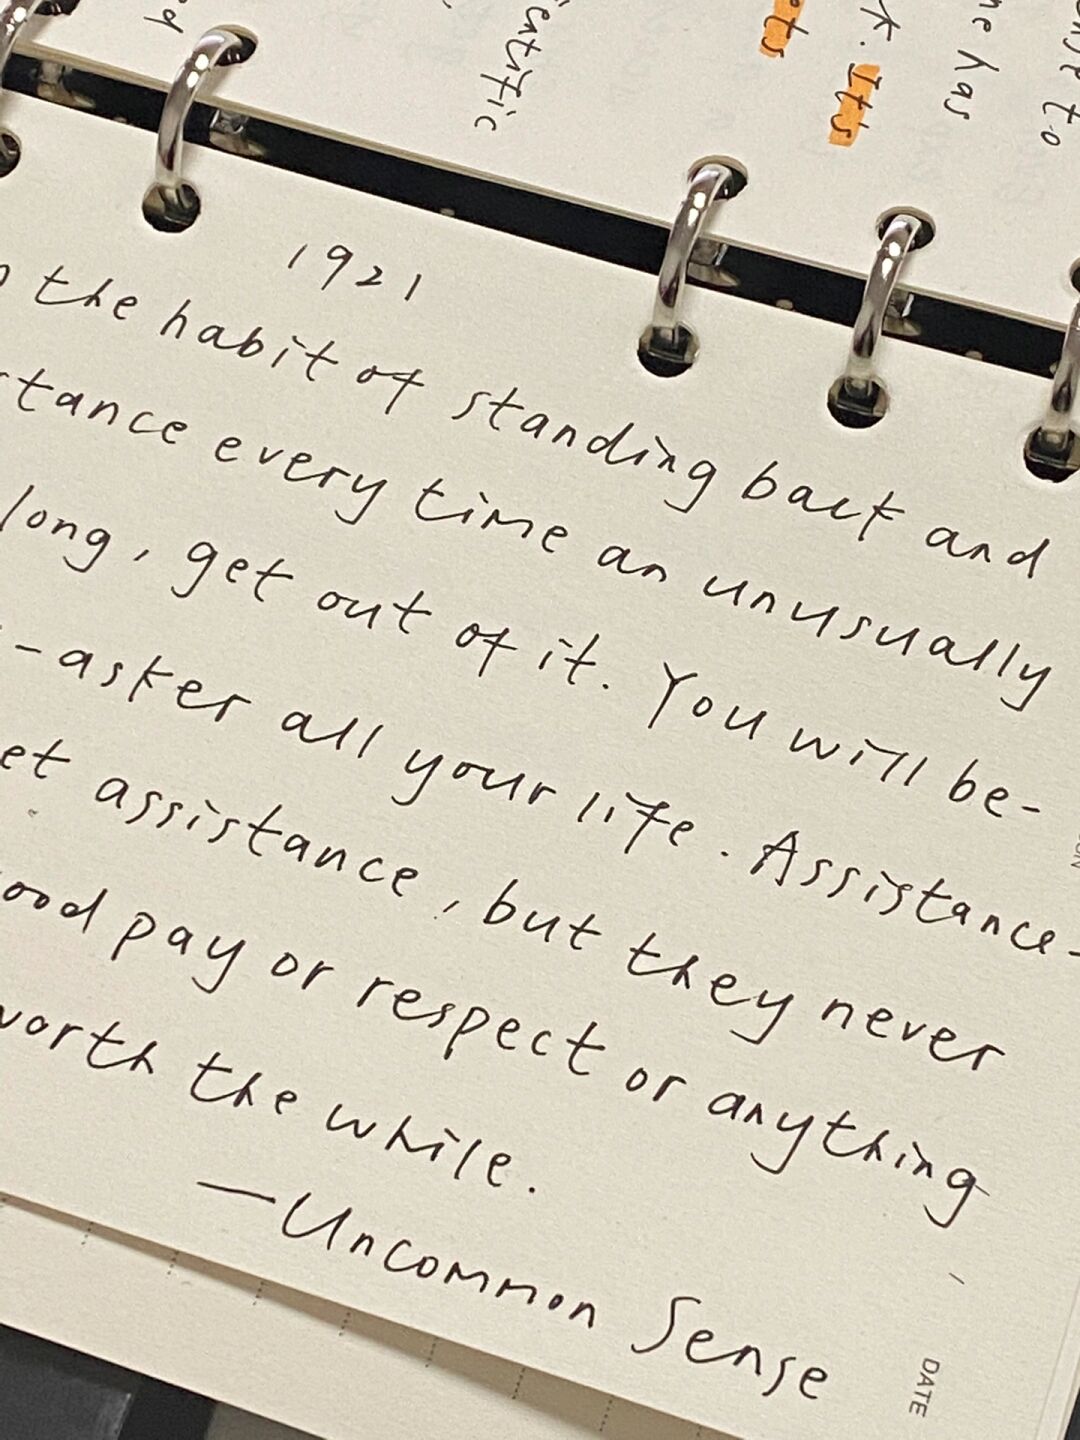 1921
the habit of standing back and
tance every time an unusually
long, get out of it. You will be-
-asker all your life. Assistance-
et assistance, but they never
ood pay or respect or anything
worth the while.
—Uncommon Sense
DATE
ets
. Its
ne has
to